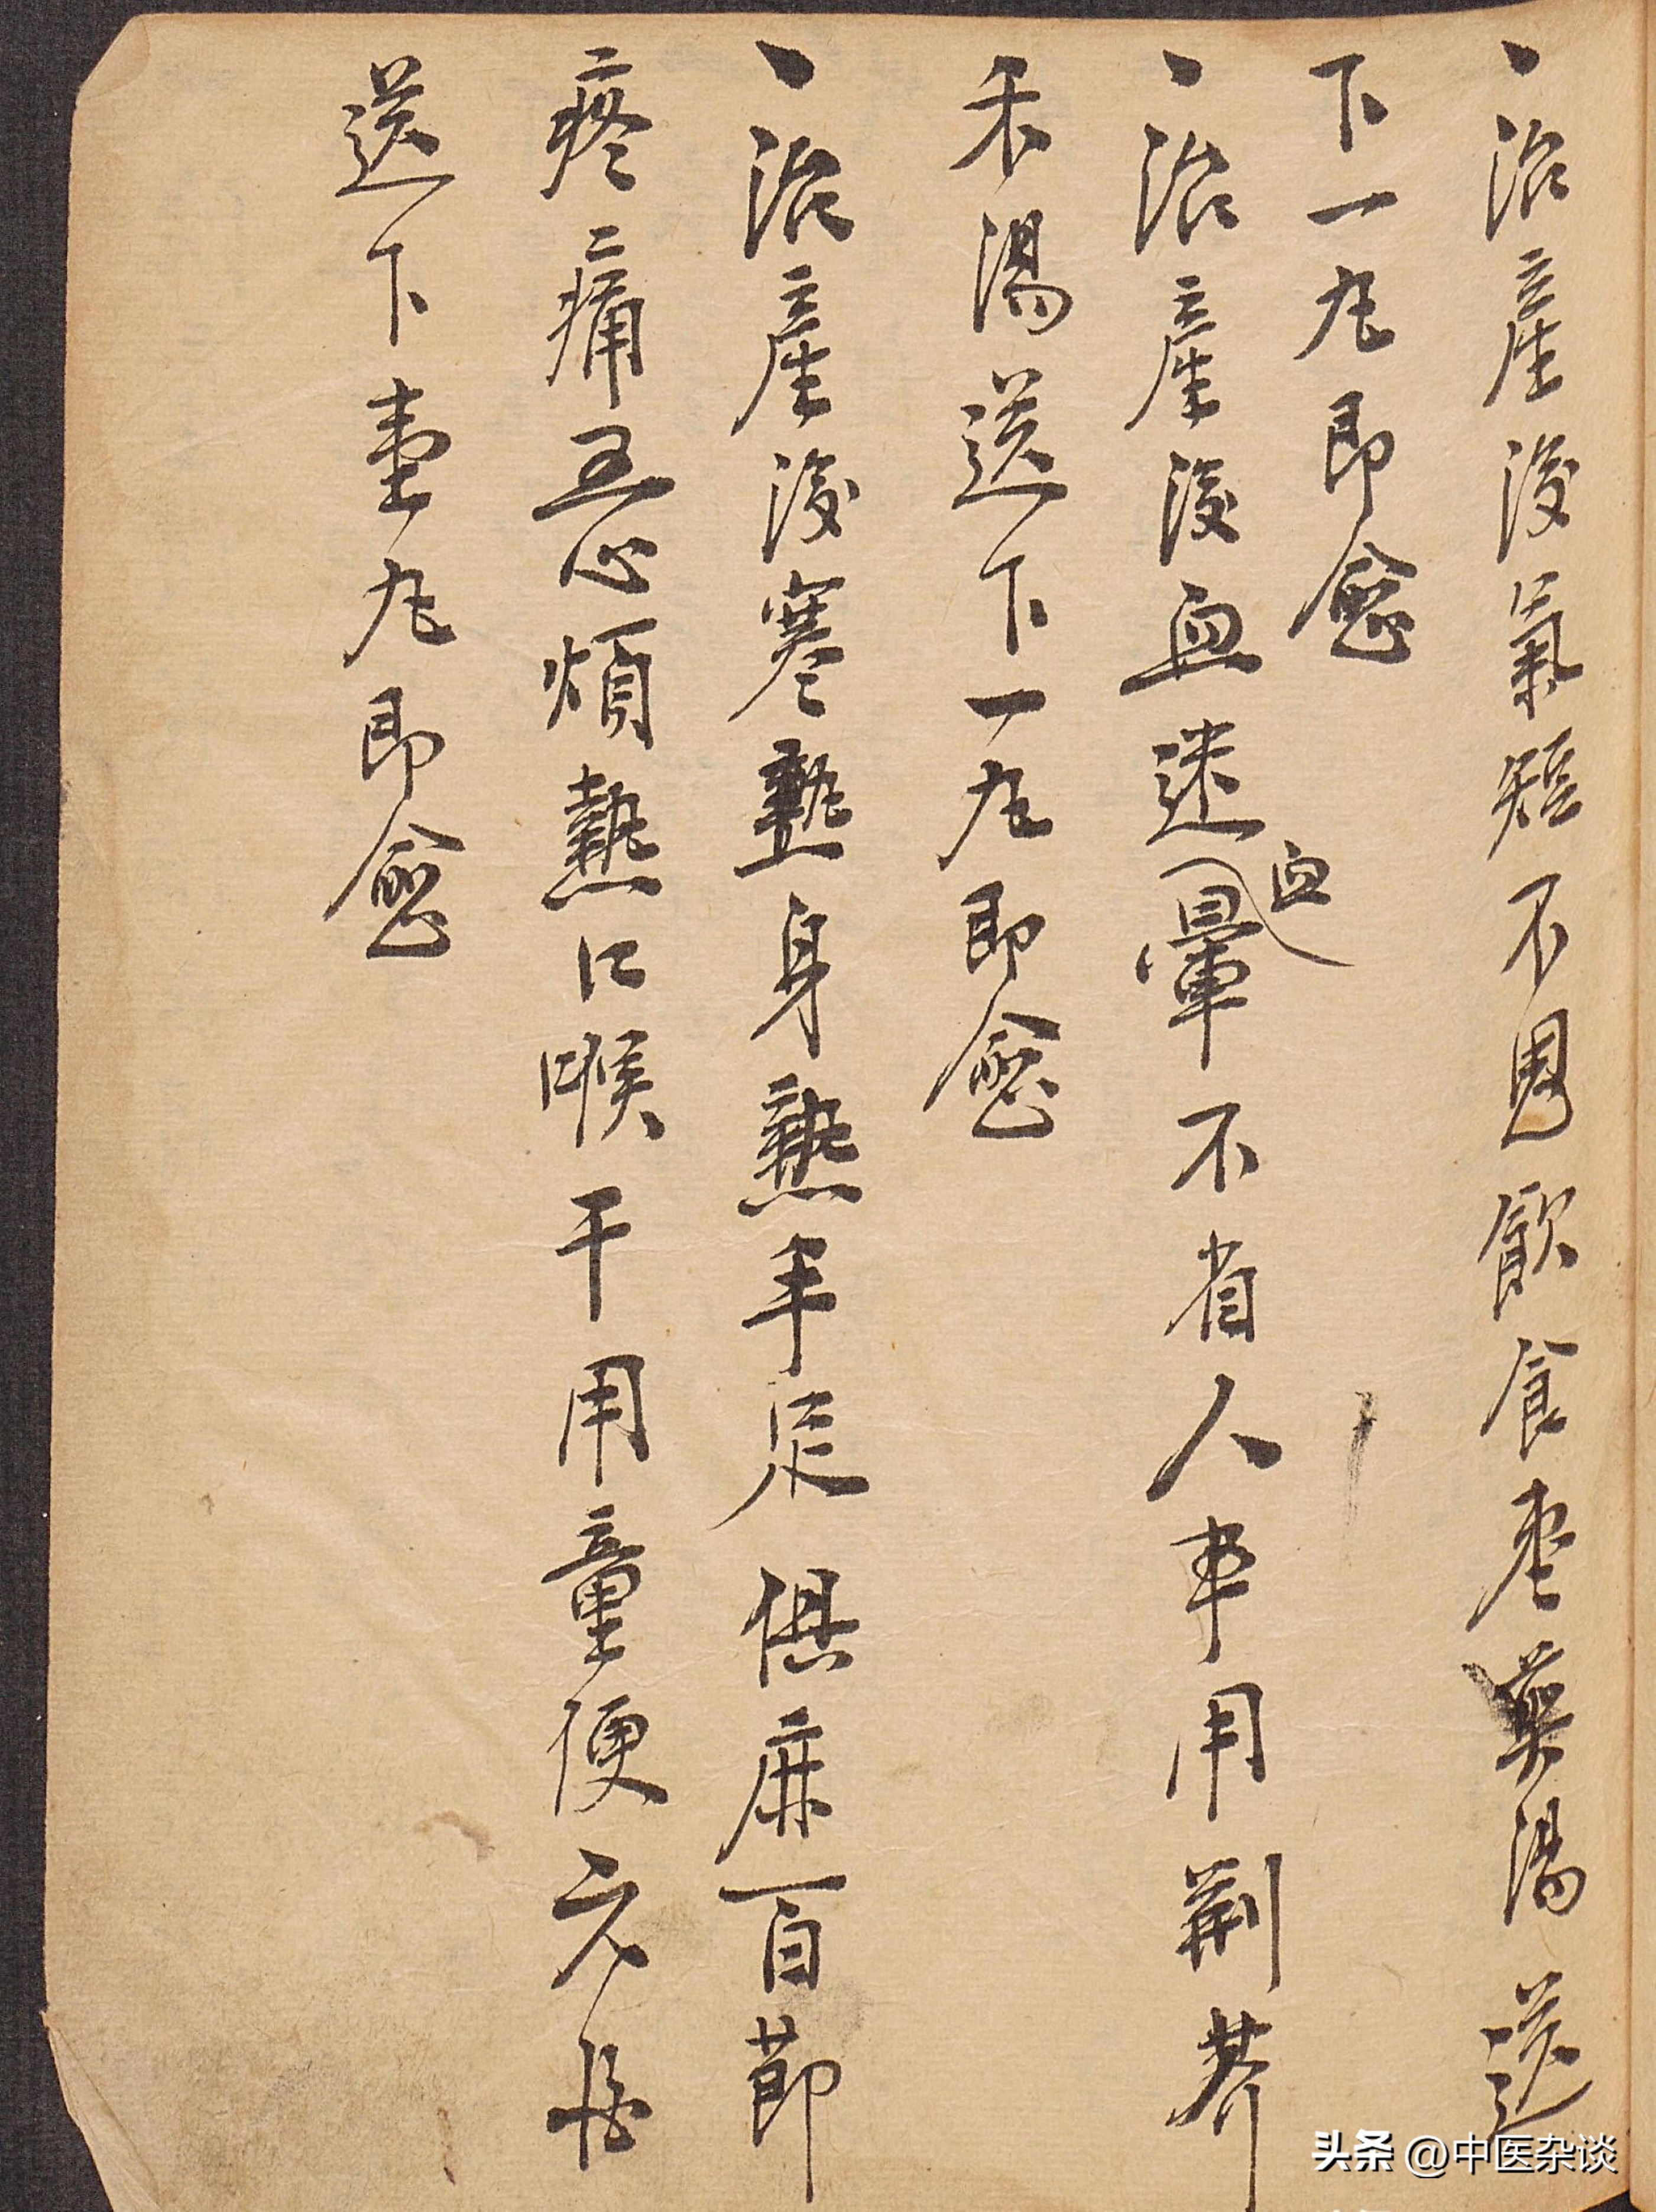 、治產後氣短不思飲食枣藥湯送
下一丸即愈
、治產後血迷血暈不省人事用荆芥
禾湯送下一丸即愈
、治產後寒熱身熱手足俱麻百節
疼痛五心煩熱口喉干用童便
送下壹丸即愈
头条 @中医杂谈